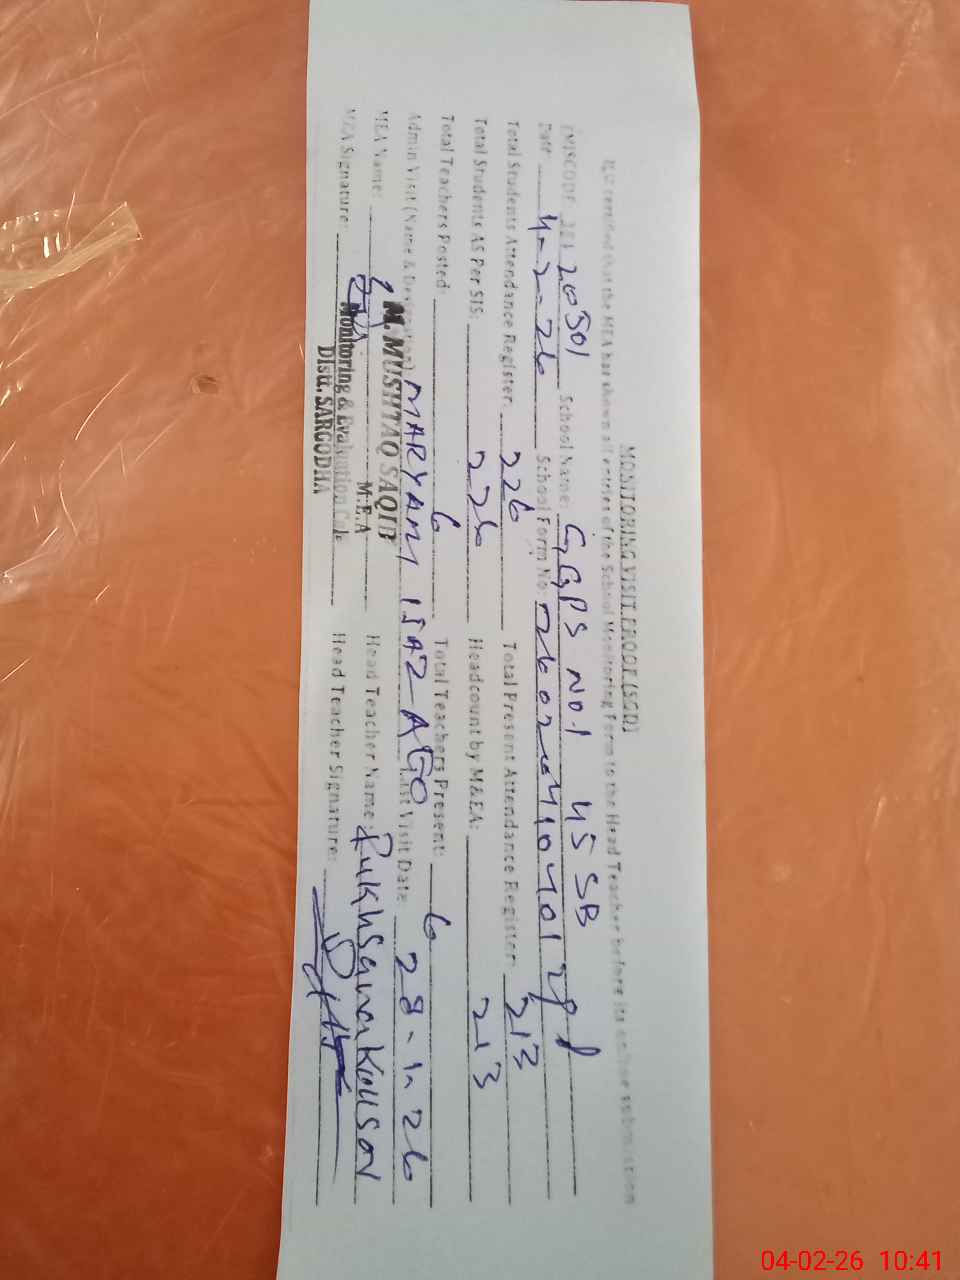 MONITORING VISIT PROOF (SGD)
It is certified that the MEA has shown all entries of the School Monitoring Form to the Head Teacher before its online submission
EMISCODE: 38120301 School Name: GGPS NO.1 45 SB
Date: 4-2-26 School Form No:
Total Students Attendance Register: 226 Total Present Attendance Register: 213
Total Students AS Per SIS: 226 Headcount by M&EA: 213
Total Teachers Posted: 6 Total Teachers Present: 6
Admin Visit (Name & Designation) MARYAM IJAZ-AEO Last Visit Date 28-1-26
MEA Name: M. MUSHTAQ SAQIB Head Teacher Name: Rukhsana Kousar
M.E.A
MEA Signature: Head Teacher Signature:
Monitoring & Evaluation Cele
Distt. SARGODHA
04-02-26 10:41